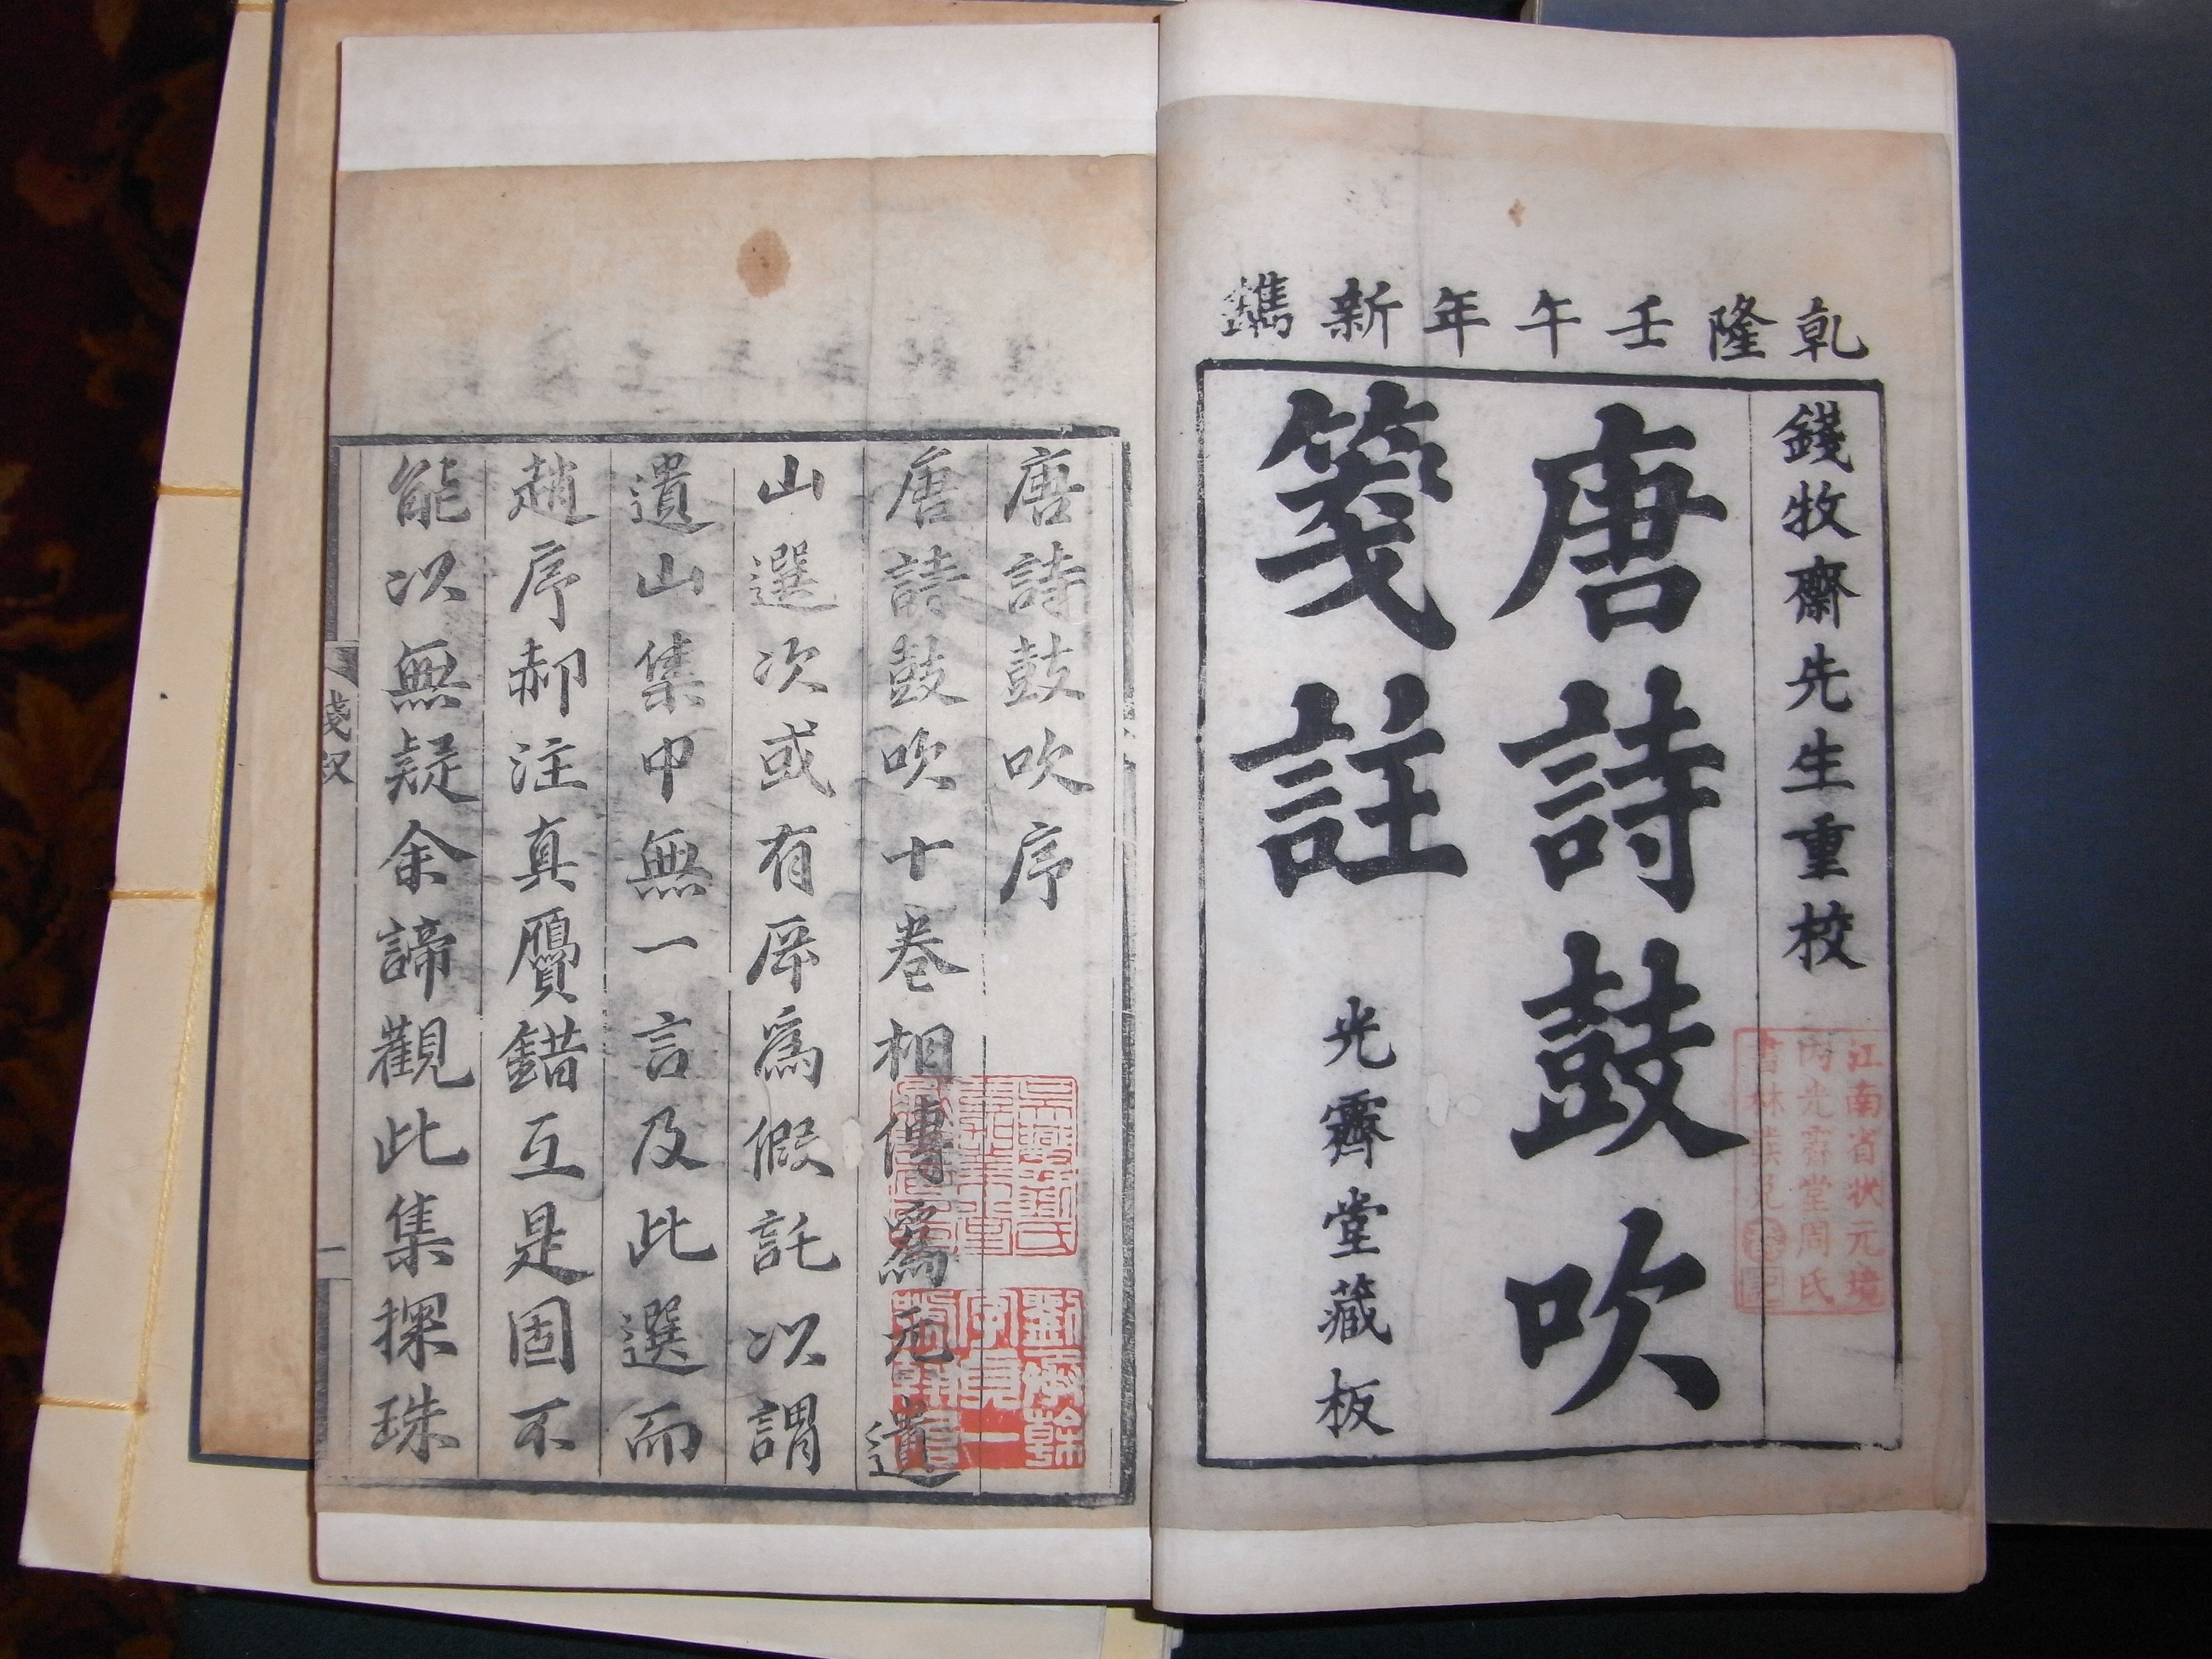 乾隆壬午年新鐫
錢牧齋先生重校
唐詩鼓吹
箋註
光霽堂藏板
江南省狀元境
內光霽堂周氏
書林發兌
唐詩鼓吹序
唐詩鼓吹十卷相傳爲元遺
山選次或有斥爲假託以謂
遺山集中無一言及此選而
趙序郝注真贋錯互是固不
能以無疑余諦觀此集探珠
劉承幹
字貞一
號翰怡